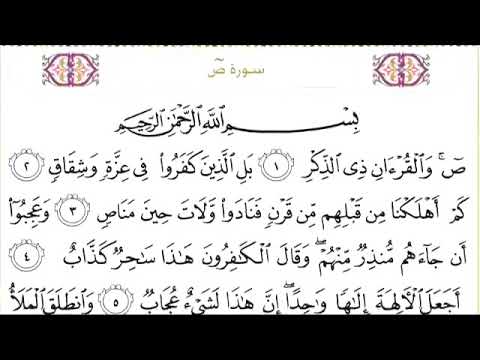 سورة ص
بِسْمِ ٱللَّهِ ٱلرَّحْمَٰنِ ٱلرَّحِيمِ
صٓ ۚ وَٱلْقُرْءَانِ ذِى ٱلذِّكْرِ ١ بَلِ ٱلَّذِينَ كَفَرُوا۟ فِى عِزَّةٍ وَشِقَاقٍ ٢
كَمْ أَهْلَكْنَا مِن قَبْلِهِم مِّن قَرْنٍ فَنَادَوا۟ وَّلَاتَ حِينَ مَنَاصٍ ٣ وَعَجِبُوٓا۟
أَن جَآءَهُم مُّنذِرٌ مِّنْهُمْ ۖ وَقَالَ ٱلْكَٰفِرُونَ هَٰذَا سَٰحِرٌ كَذَّابٌ ٤
أَجَعَلَ ٱلْءَالِهَةَ إِلَٰهًا وَٰحِدًا ۖ إِنَّ هَٰذَا لَشَىْءٌ عُجَابٌ ٥ وَٱنطَلَقَ ٱلْمَلَأُ